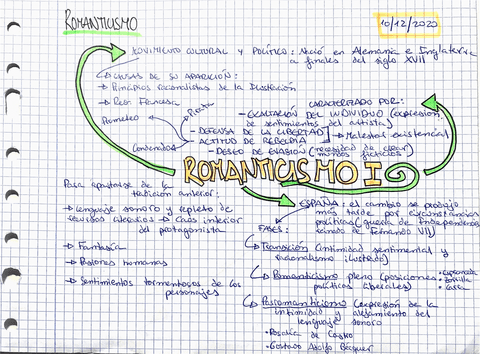 ROMANTICISMO
10/12/2020
MOVIMIENTO CULTURAL Y POLÍTICO: Nació en Alemania e Inglaterra
a finales del siglo XVII
→ CAUSAS DE SU APARICIÓN:
→ Principios racionalistas de la Ilustración
→ Rev. Francesa
Prometeo
Pirata
Condenado a
CARACTERIZADO POR:
- EXALTACIÓN DEL INDIVIDUO (expresión
de sentimientos del artista)
- DEFENSA DE LA LIBERTAD
- ACTITUD DE REBELDÍA
→ Malestar existencial
- DESEO DE EVASIÓN (necesidad de crear
mundos ficticios)
ROMANTICISMO I
Para apartarse de la
tradición anterior:
→ Lenguaje sonoro y repleto de
recursos literarios → Caos interior
del protagonista
→ Fantasía
→ Pasiones humanas
→ Sentimientos tormentosos de los
personajes
→ ESPAÑA: el cambio se produjo
más tarde por circunstancias
políticas (guerra de Independencia
reinado de Fernando VII)
FASES:
→ Transición (intimidad sentimental y
racionalismo ilustrado)
→ Romanticismo pleno (posiciones
políticas liberales)
• Espronceda
• Zorrilla
• Larra
→ Posromanticismo (expresión de la
intimidad y alejamiento del
lenguaje sonoro
• Rosalía de Castro
• Gustavo Adolfo Bécquer